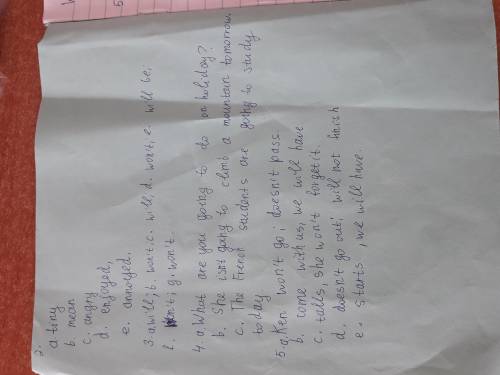 2.
a tiny
b. mean
c. angry
d. enjoyed,
e. annoyed.
3. a. will; b. won't; c. will, d. won't, e. will be;
f. won't; g. won't.
4. a. What are you going to do on holiday?
b. She isn't going to climb a mountain tomorrow.
c. The French students are going to study
today.
5. a. Ken won't go; doesn't pass.
b. come with us, we will have
c. talls, she won't forget it.
d. doesn't go out; will not finish
e. starts, we will have.
5